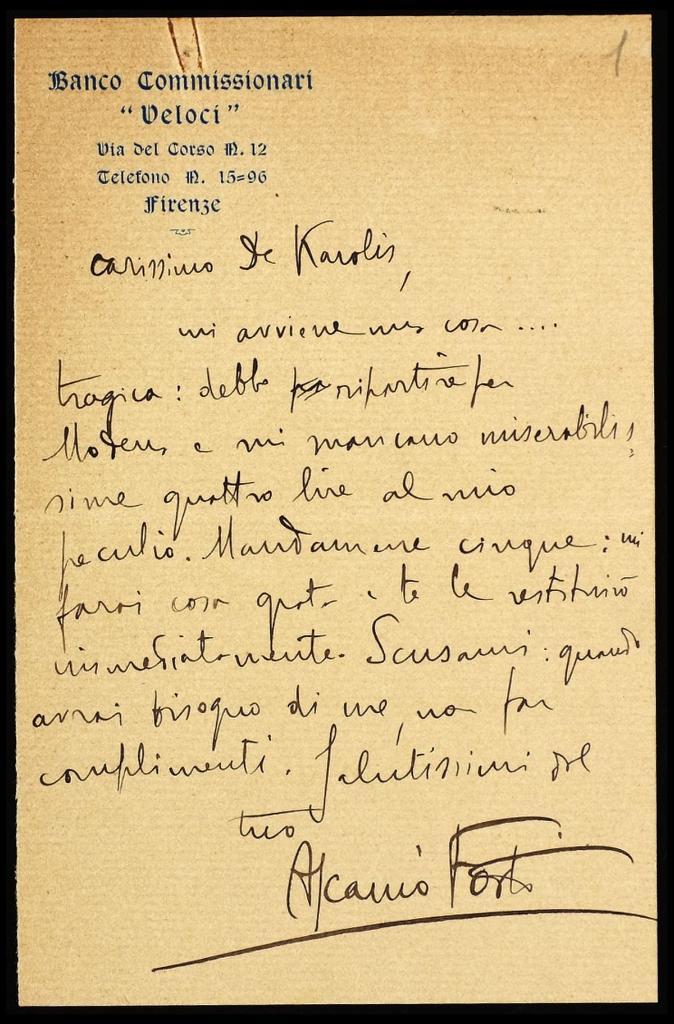 1
Banco Commissionari
“Veloci”
Via del Corso N. 12
Telefono N. 15=96
Firenze
Carissimo De Karolis,
mi avviene una cosa ....
tragica: debbo ripartire per
Modena e mi mancano miserabilis=
sime quattro lire al mio
peculio. Mandamene cinque: mi
farai cosa grata e te le restituirò
immediatamente. Scusami: quando
avrai bisogno di me, non far
complimenti. Salutissimi dal
tuo
Ascanio Forti